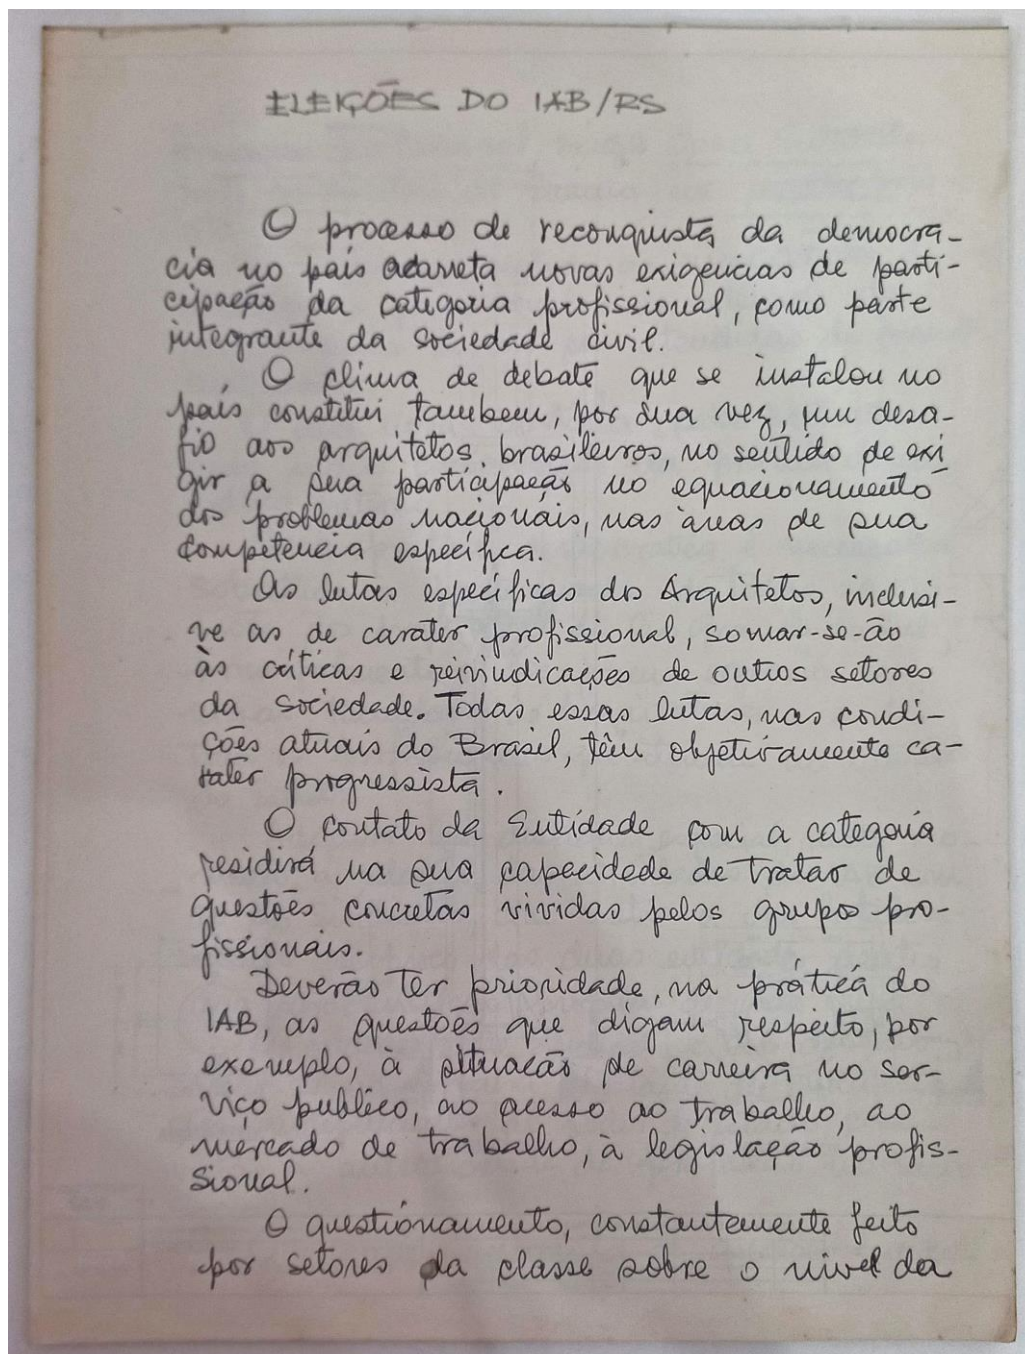 ELEIÇÕES DO IAB/RS
O processo de reconquista da democra-
cia no país acarreta novas exigencias de parti-
cipação da categoria profissional, como parte
integrante da sociedade civil.
O clima de debate que se instalou no
país constitui tambem, por sua vez, um desa-
fio aos arquitetos brasileiros, no sentido de exi
gir a sua participação no equacionamento
dos problemas nacionais, nas áreas de sua
competencia específica.
As lutas específicas dos Arquitetos, inclusi-
ve as de carater profissional, somar-se-ão
às críticas e reivindicações de outros setores
da sociedade. Todas essas lutas, nas condi-
ções atuais do Brasil, têm objetivamente ca-
rater progressista.
O contato da Entidade com a categoria
residirá na sua capacidade de tratar de
questões concretas vividas pelos grupos pro-
fissionais.
Deverão ter prioridade, na prática do
IAB, as questões que digam respeito, por
exemplo, à situação de carreira no ser-
viço publico, ao acesso ao trabalho, ao
mercado de trabalho, à legislação profis-
sional.
O questionamento, constantemente feito
por setores da classe sobre o nivel da